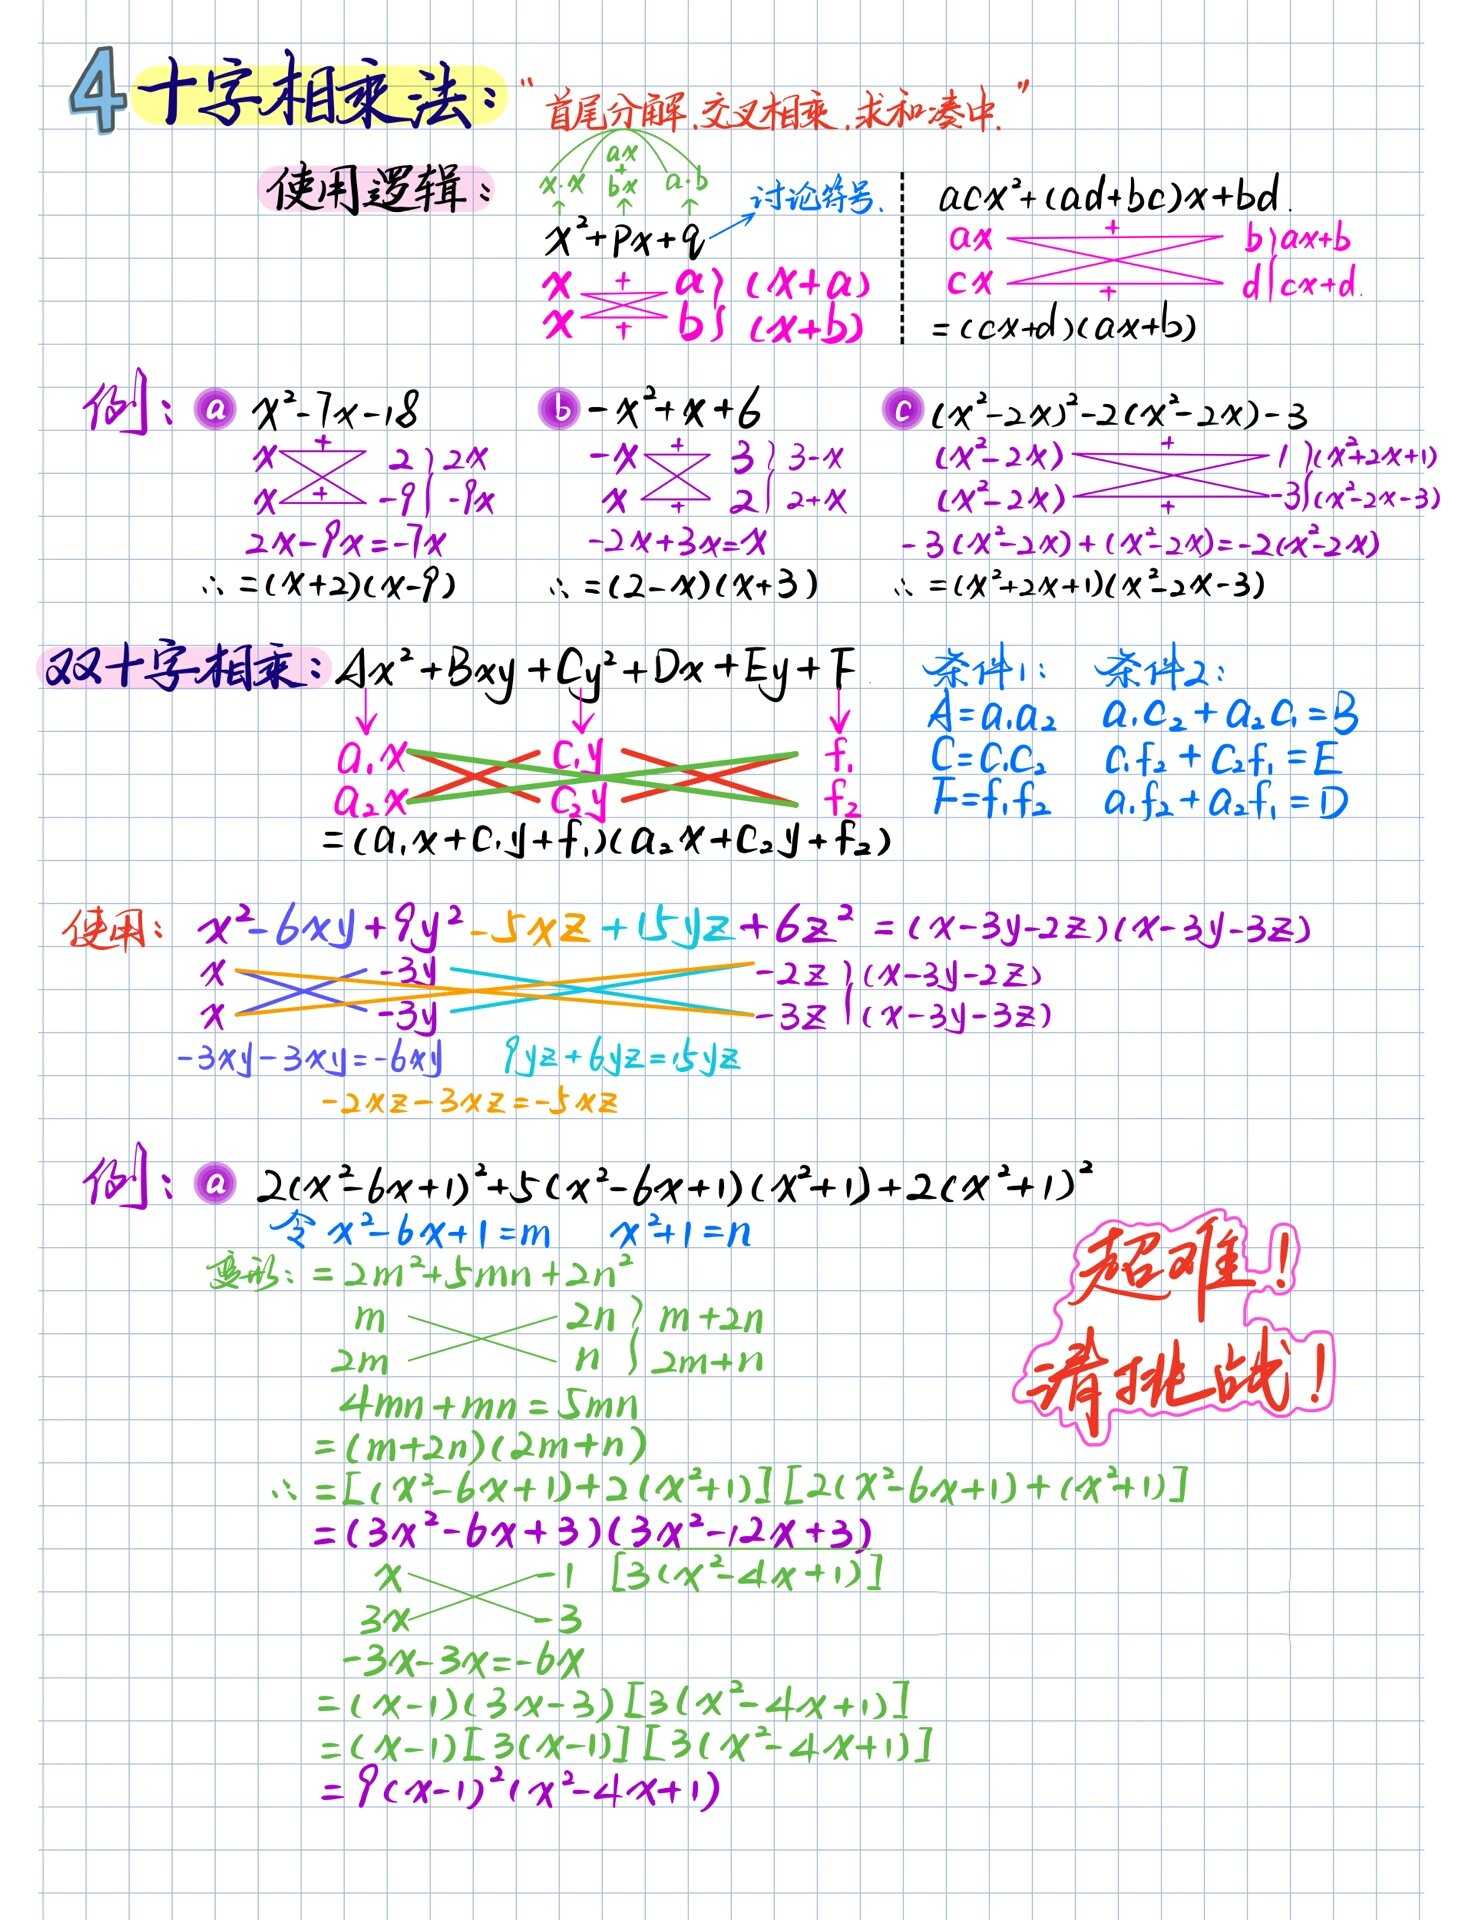 4 十字相乘法："首尾分解,交叉相乘,求和凑中."
使用逻辑：
x·x ax + bx a·b
x²+px+q 讨论符号.
x + a } (x+a)
x + b } (x+b)
acx²+(ad+bc)x+bd.
ax + b } ax+b
cx + d } cx+d.
=(cx+d)(ax+b)
例：
a x²-7x-18
x + 2 } 2x
x + -9 } -9x
2x-9x=-7x
∴ =(x+2)(x-9)
b -x²+x+6
-x + 3 } 3-x
x + 2 } 2+x
-2x+3x=x
∴ =(2-x)(x+3)
c (x²-2x)²-2(x²-2x)-3
(x²-2x) + 1 } (x²+2x+1)
(x²-2x) + -3 } (x²-2x-3)
-3(x²-2x)+(x²-2x)=-2(x²-2x)
∴ =(x²+2x+1)(x²-2x-3)
双十字相乘：Ax²+Bxy+Cy²+Dx+Ey+F
a₁x c₁y f₁
a₂x c₂y f₂
=(a₁x+c₁y+f₁)(a₂x+c₂y+f₂)
条件1： 条件2：
A=a₁a₂ a₁c₂+a₂c₁=B
C=c₁c₂ c₁f₂+c₂f₁=E
F=f₁f₂ a₁f₂+a₂f₁=D
使用： x²-6xy+9y²-5xz+15yz+6z² =(x-3y-2z)(x-3y-3z)
x -3y -2z } (x-3y-2z)
x -3y -3z } (x-3y-3z)
-3xy-3xy=-6xy 9yz+6yz=15yz
-2xz-3xz=-5xz
例： a 2(x²-6x+1)²+5(x²-6x+1)(x²+1)+2(x²+1)²
令 x²-6x+1=m x²+1=n
变形：=2m²+5mn+2n²
m 2n } m+2n
2m n } 2m+n
4mn+mn=5mn
=(m+2n)(2m+n)
∴ =[(x²-6x+1)+2(x²+1)][2(x²-6x+1)+(x²+1)]
=(3x²-6x+3)(3x²-12x+3)
x -1 [3(x²-4x+1)]
3x -3
-3x-3x=-6x
=(x-1)(3x-3)[3(x²-4x+1)]
=(x-1)[3(x-1)][3(x²-4x+1)]
=9(x-1)²(x²-4x+1)
超难！
请挑战！